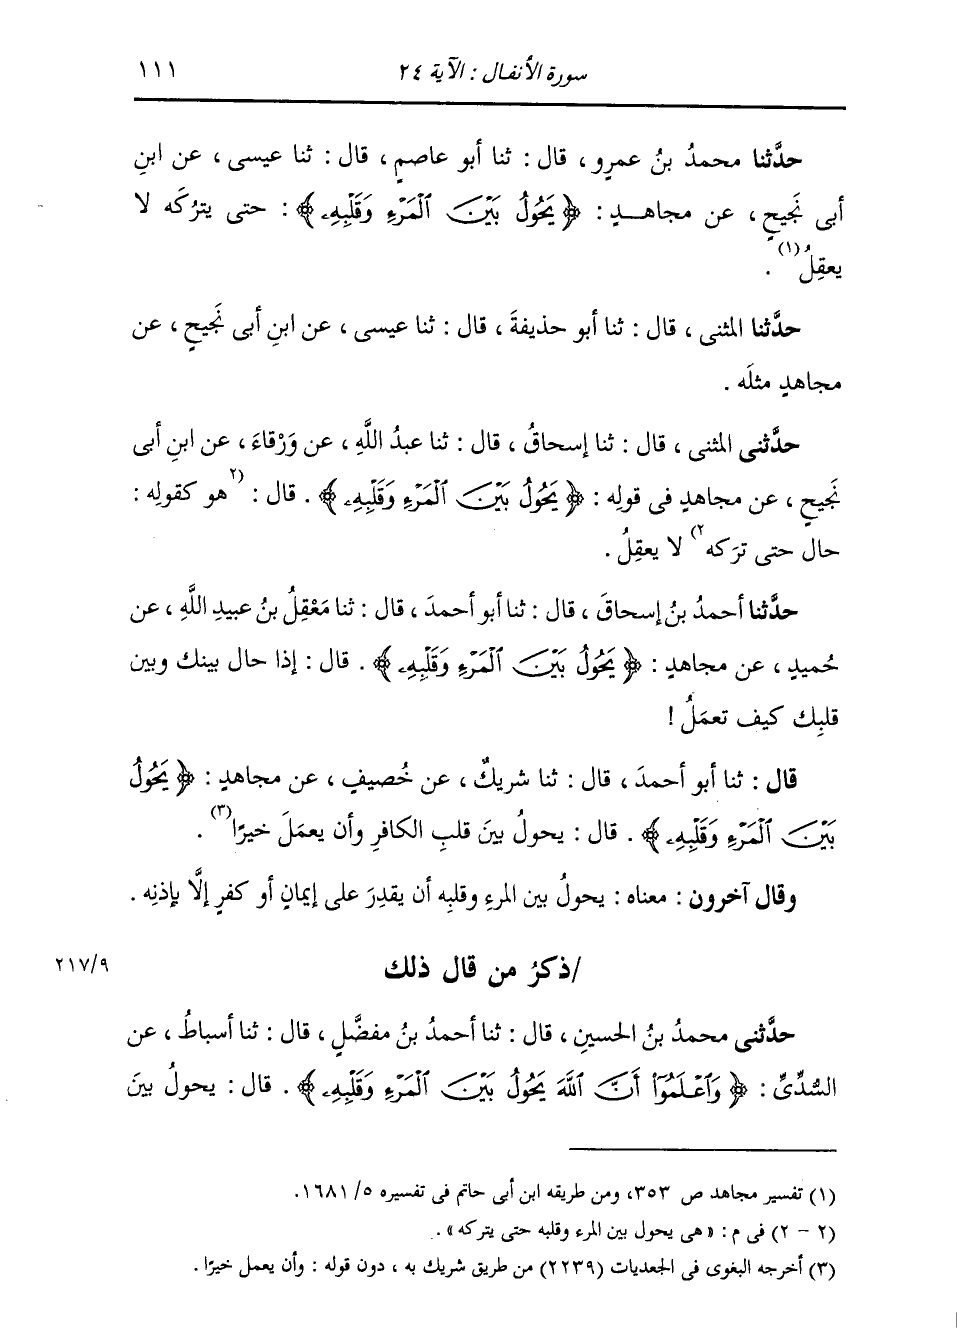 سورة الأنفال : الآية ٢٤
١١١
حدَّثنا محمدُ بنُ عمرٍو ، قال : ثنا أبو عاصمٍ ، قال : ثنا عيسى ، عن ابنِ
أبى نَجيحٍ ، عن مجاهدٍ : ﴿ يَحُولُ بَيْنَ ٱلْمَرْءِ وَقَلْبِهِۦ ﴾ : حتى يترُكَه لا
يعقِلُ(١) .
حدَّثنا المثنى ، قال : ثنا أبو حذيفةَ ، قال : ثنا عيسى ، عن ابنِ أبى نَجيحٍ ، عن
مجاهدٍ مثلَه .
حدَّثنى المثنى ، قال : ثنا إسحاقُ ، قال : ثنا عبدُ اللَّهِ ، عن وَرْقاءَ ، عن ابنِ أبى
نَجيحٍ ، عن مجاهدٍ فى قولِه : ﴿ يَحُولُ بَيْنَ ٱلْمَرْءِ وَقَلْبِهِۦ ﴾ . قال : (٢هو كقولِه :
حال حتى ترَكه٢) لا يعقِلُ .
حدَّثنا أحمدُ بنُ إسحاقَ ، قال : ثنا أبو أحمدَ ، قال : ثنا مَعْقِلُ بنُ عبيدِ اللَّهِ ، عن
حُميدٍ ، عن مجاهدٍ : ﴿ يَحُولُ بَيْنَ ٱلْمَرْءِ وَقَلْبِهِۦ ﴾ . قال : إذا حال بينك وبين
قلبِك كيف تعمَلُ !
قال : ثنا أبو أحمدَ ، قال : ثنا شريكٌ ، عن خُصيفٍ ، عن مجاهدٍ : ﴿ يَحُولُ
بَيْنَ ٱلْمَرْءِ وَقَلْبِهِۦ ﴾ . قال : يحولُ بينَ قلبِ الكافرِ وأن يعمَلَ خيرًا(٣) .
وقال آخرون : معناه : يحولُ بين المرءِ وقلبِه أن يقدِرَ على إيمانٍ أو كفرٍ إلَّا بإذنِه .
/ذكرُ من قال ذلك
٢١٧/٩
حدَّثنى محمدُ بنُ الحسينِ ، قال : ثنا أحمدُ بنُ مفضَّلٍ ، قال : ثنا أسباطُ ، عن
السُّدِّىِّ : ﴿ وَٱعْلَمُوٓا۟ أَنَّ ٱللَّهَ يَحُولُ بَيْنَ ٱلْمَرْءِ وَقَلْبِهِۦ ﴾ . قال : يحولُ بينَ
(١) تفسير مجاهد ص ٣٥٣، ومن طريقه ابن أبى حاتم فى تفسيره ٥/ ١٦٨١.
(٢ - ٢) فى م : « هى يحول بين المرء وقلبه حتى يتركه » .
(٣) أخرجه البغوى فى الجعديات (٢٢٣٩) من طريق شريك به ، دون قوله : وأن يعمل خيرًا .